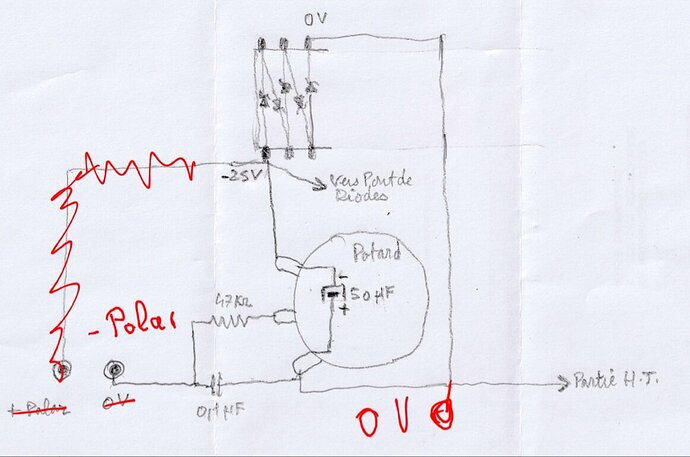 0V
-25V
Vers Pont de
Diodes
Potard
-
50µF
+
47KΩ
- Polar
+ Polar
0V
0,1µF
0V
Partie H.T.